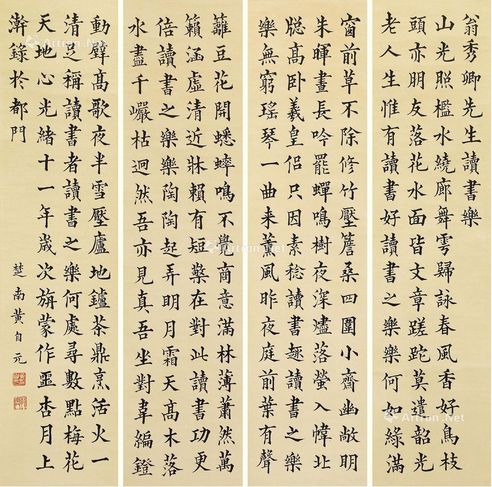 翁秀卿先生讀書樂
山光照檻水繞廊舞雩歸詠春風香好鳥枝
頭亦朋友落花水面皆文章蹉跎莫遣韶光
老人生惟有讀書好讀書之樂樂何如綠滿
窗前草不除修竹壓簷桑四圍小齋幽敞明
朱暉晝長吟罷蟬鳴樹夜深燼落螢入幃北
牕高臥羲皇侶只因素稔讀書趣讀書之樂
樂無窮瑤琴一曲来薰風昨夜庭前葉有聲
籬豆花開蟋蟀鳴不覺商意滿林薄蕭然萬
籟涵虛清近牀賴有短檠在對此讀書功更
倍讀書之樂樂陶陶起弄明月霜天高木落
水盡千巖枯迥然吾亦見真吾坐對韋編鐙
動壁高歌夜半雪壓廬地鑪茶鼎烹活火一
清足稱讀書者讀書之樂何處尋數點梅花
天地心光緒十一年歲次旃蒙作噩杏月上
澣錄於都門
楚南黃自元